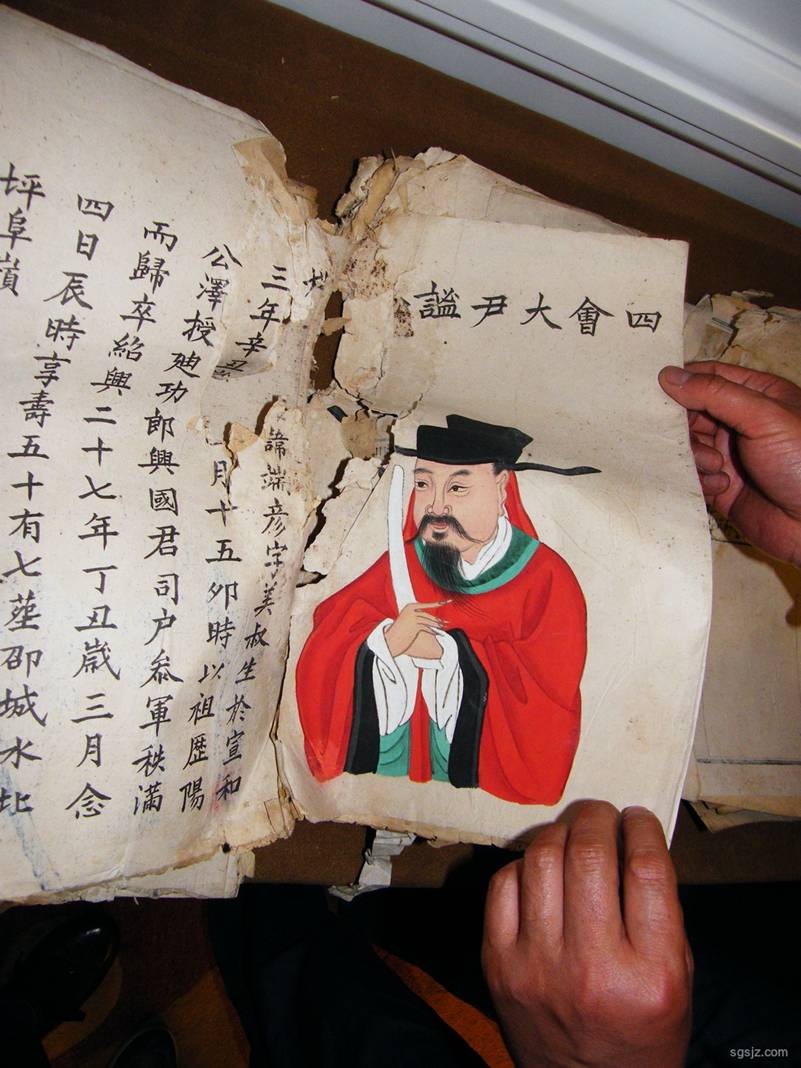 四會大尹謚
諱端彦字美叔生於宣和
三年辛丑 月十五卯時以祖歷陽
公澤授廸功郎興國君司户叅軍秩滿
而歸卒紹興二十七年丁丑歲三月念
四日辰時享壽五十有七塟邵城水北
坪阜嶺
sgsjz.com